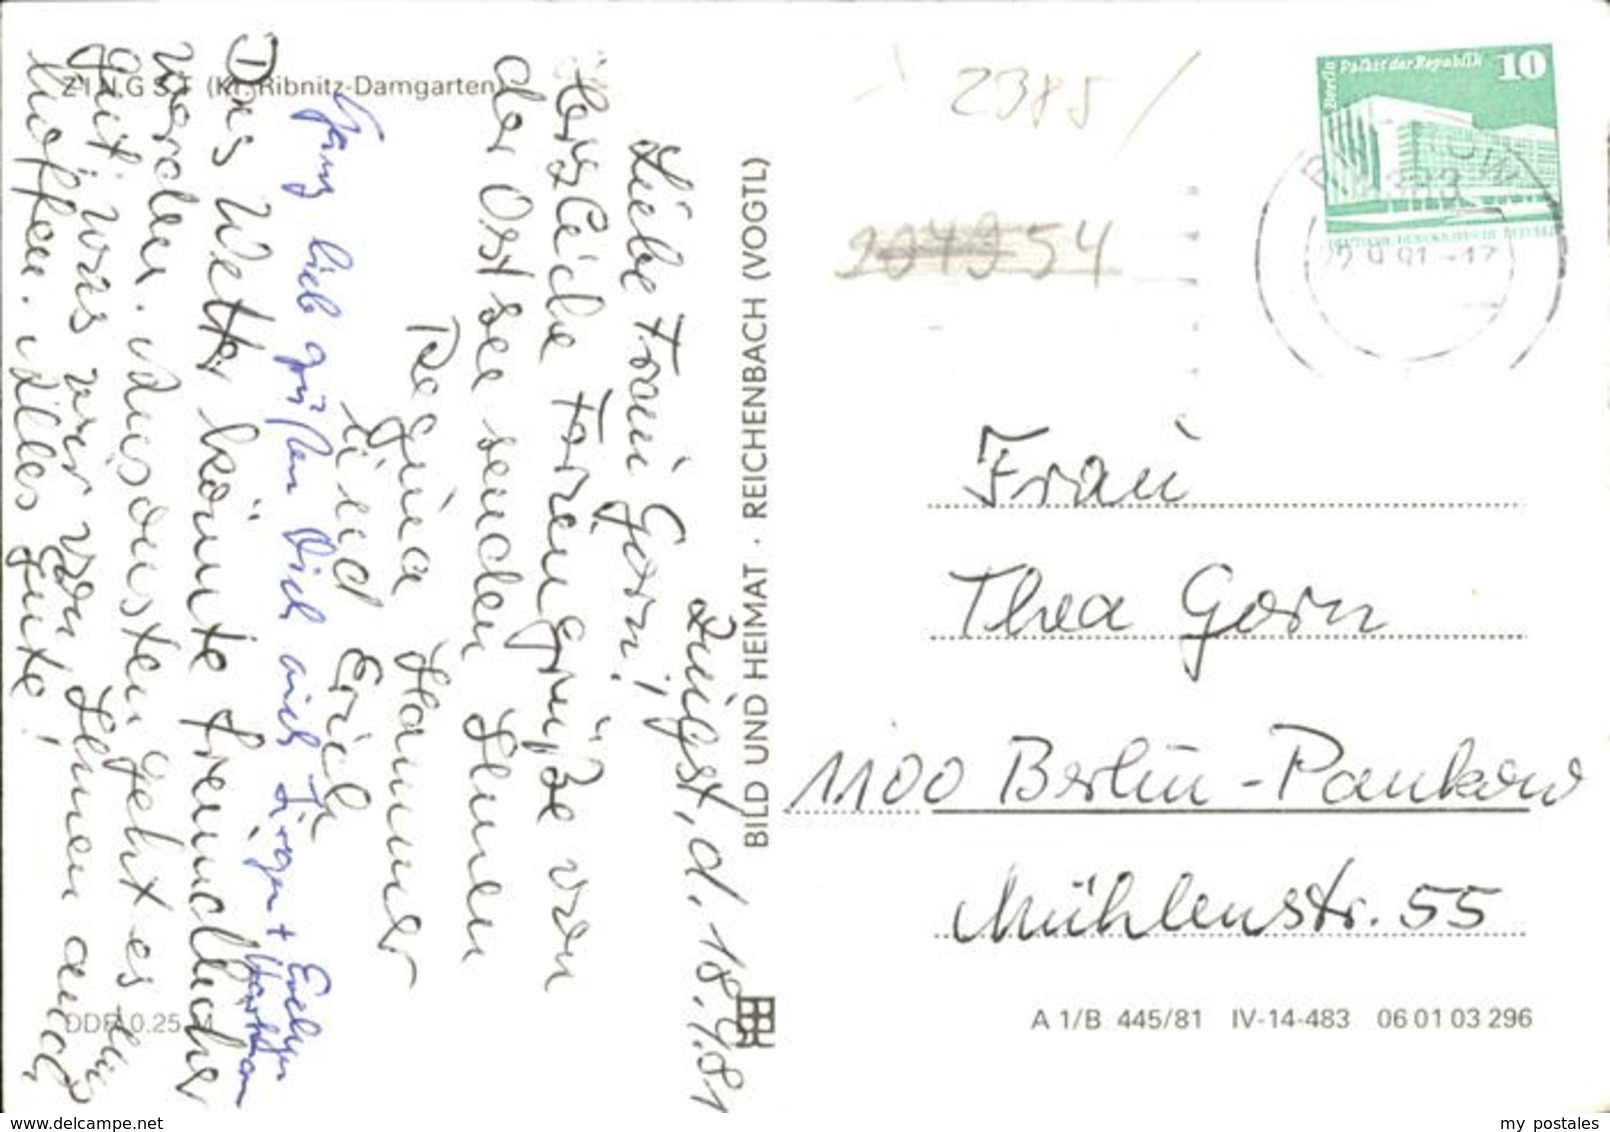 ZINGST (Kr. Ribnitz-Damgarten)
Zingst, d. 18.9.81
Liebe Frau Gorn!
Herzliche Feriengrüße von
der Ostsee senden Ihnen
Regina Hammer
und Erich
Ganz lieb grüßen Dich auch Jürgen + Evelyn
+ Hartham
Das Wetter könnte freundlicher
werden. Ansonsten geht es uns
gut, was wir von Ihnen auch
hoffen. Alles Gute!
DDR 0.25 M
BILD UND HEIMAT · REICHENBACH (VOGTL)
2385/
204954
Berlin Palast der Republik 10
DEUTSCHE DEMOKRATISCHE REPUBLIK
2383
22.9.81-17
Frau
Thea Gorn
1100 Berlin-Pankow
Mühlenstr. 55
A 1/B 445/81 IV-14-483 06 01 03 296
www.delcampe.net
my postales